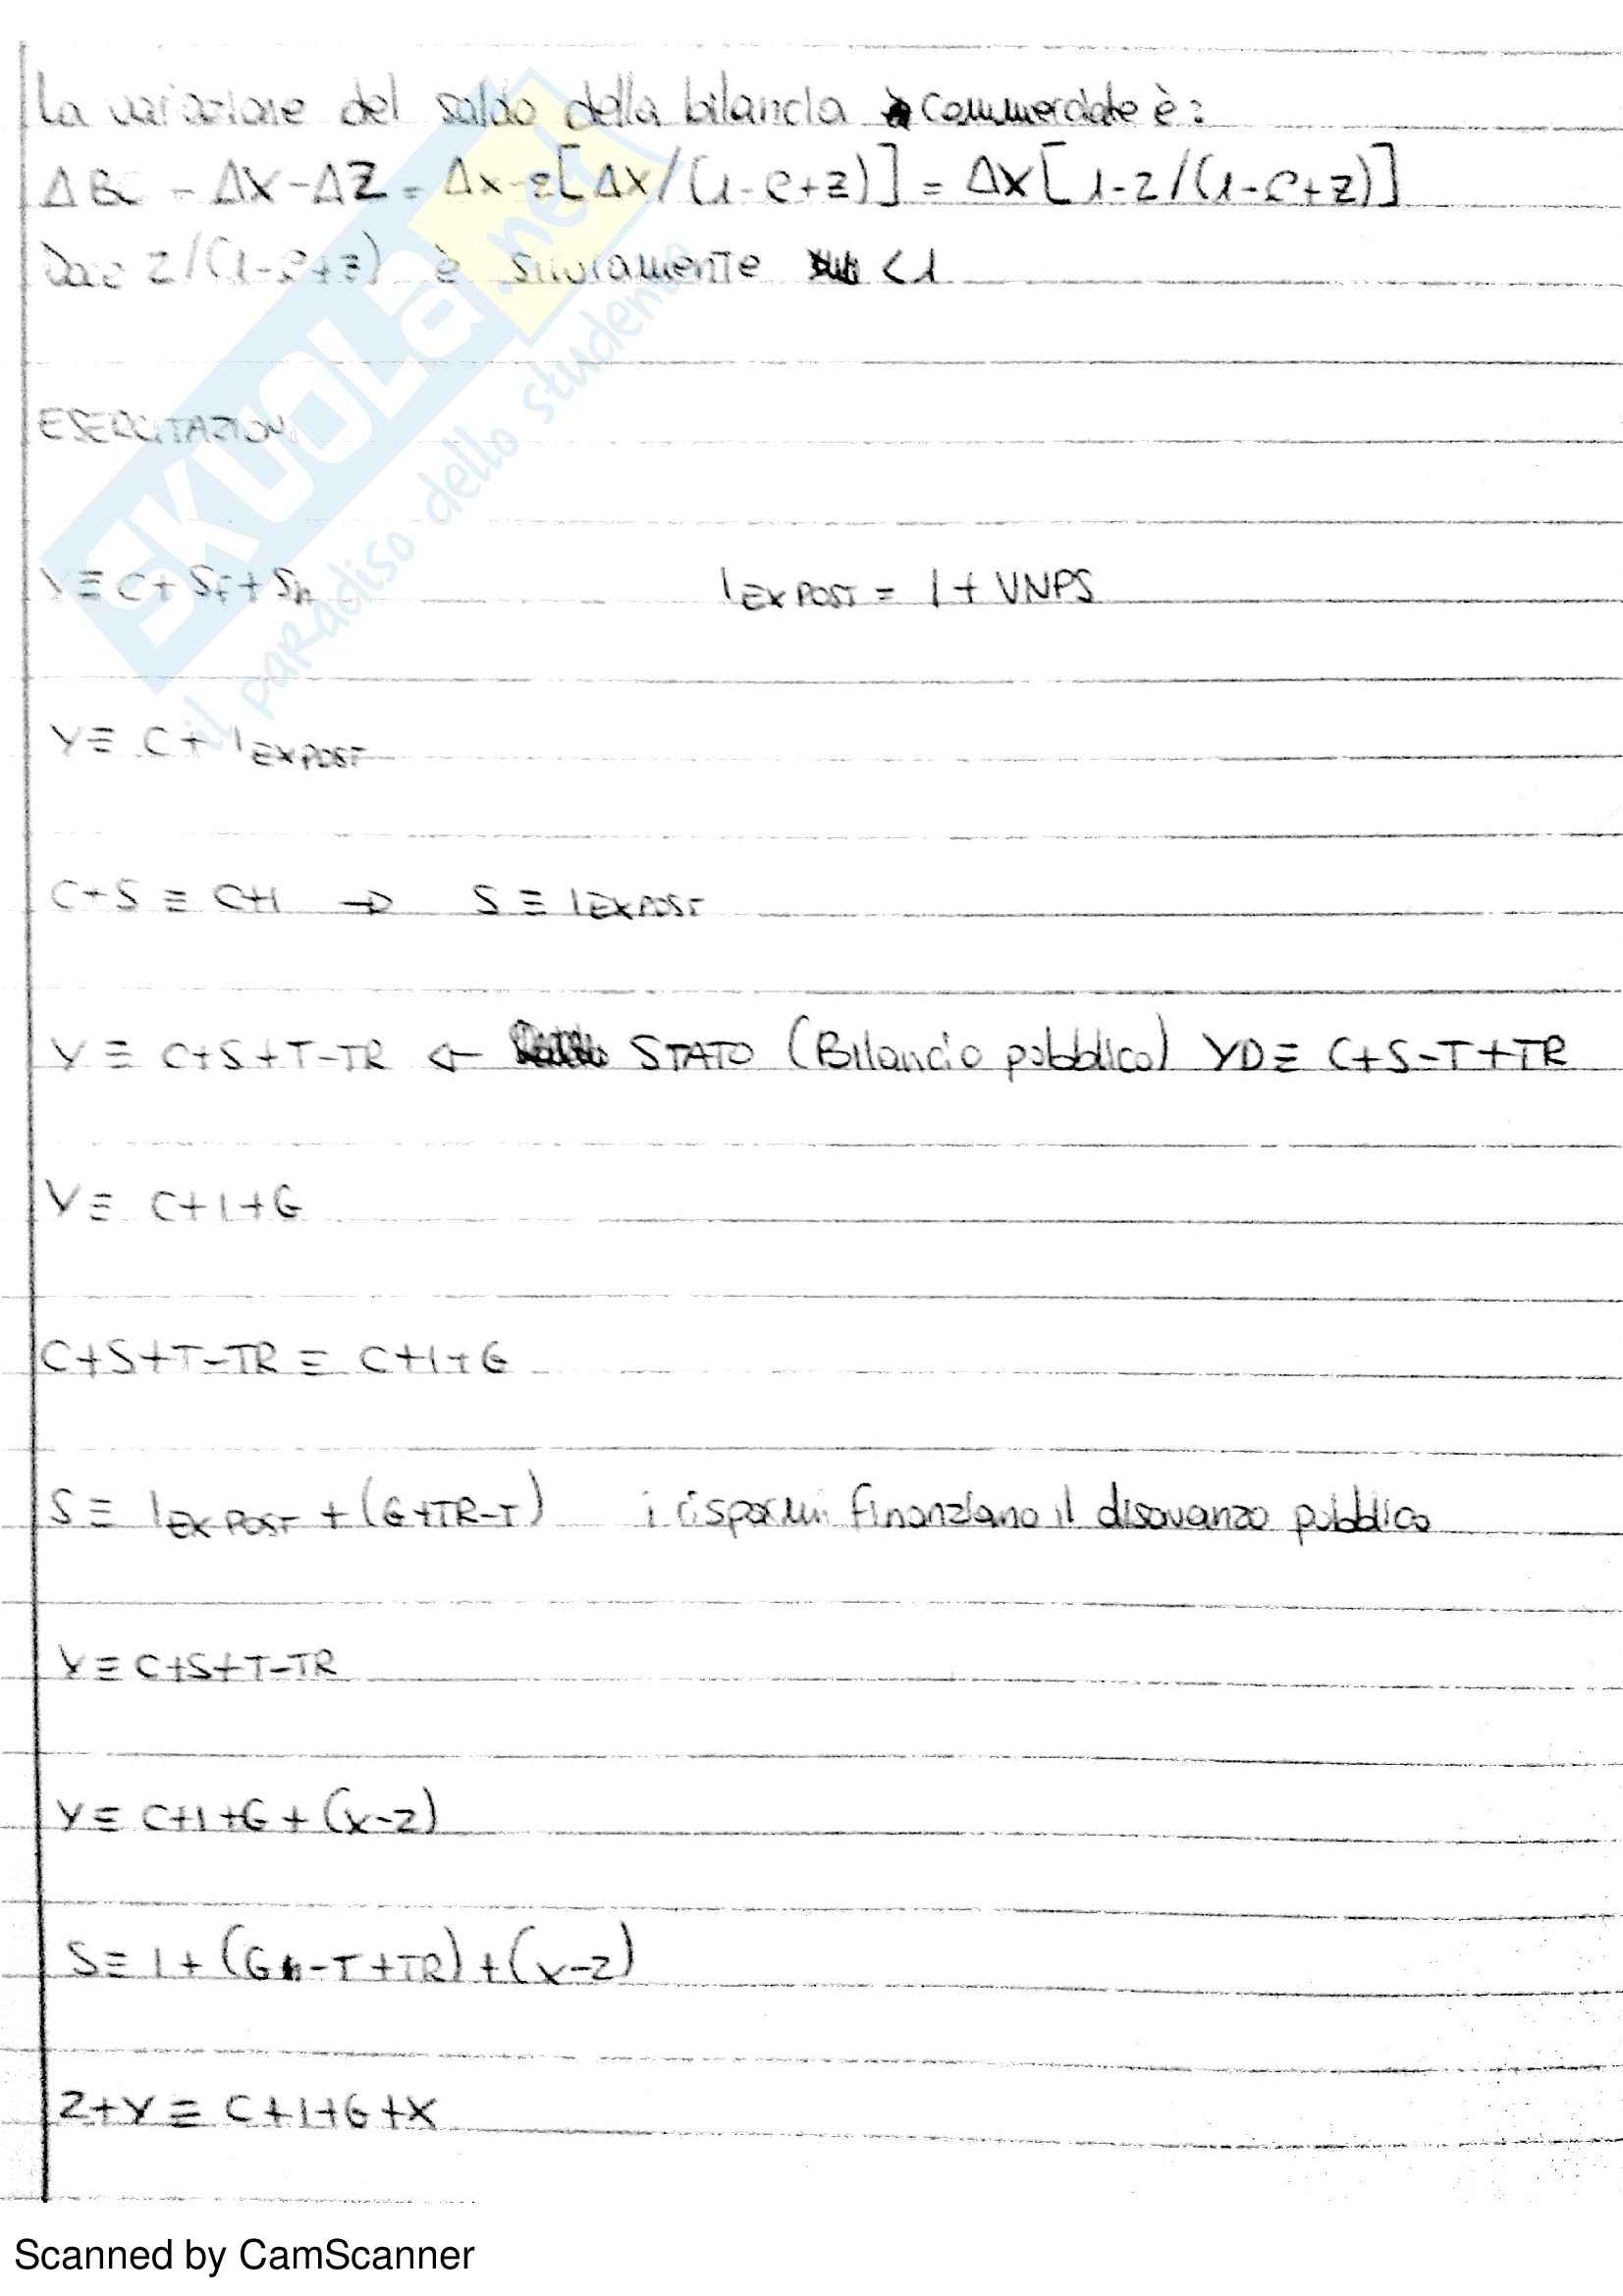 La variazione del saldo della bilancia commerciale è:
ΔBC = ΔX-ΔZ = ΔX-z[ΔX/(1-c+z)] = ΔX[1-z/(1-c+z)]
Dove z/(1-c+z) è sicuramente <1
ESERCITAZIONI
Y≡ C+ Sf+ Sh
I EX POST = I + VNPS
Y≡ C+ I EX POST
C+S ≡ C+I → S ≡ I EX POST
Y ≡ C+S+T-TR ← STATO (Bilancio pubblico) YD≡ C+S-T+TR
Y≡ C+I+G
C+S+T-TR ≡ C+I+G
S≡ I EX POST + (G+TR-T) i risparmi finanziano il disavanzo pubblico
Y≡C+S+T-TR
Y≡ C+I+G+(X-Z)
S≡ I+(G-T+TR)+(X-Z)
Z+Y≡ C+I+G+X
SKUOLA.net
il paradiso dello studente
Scanned by CamScanner